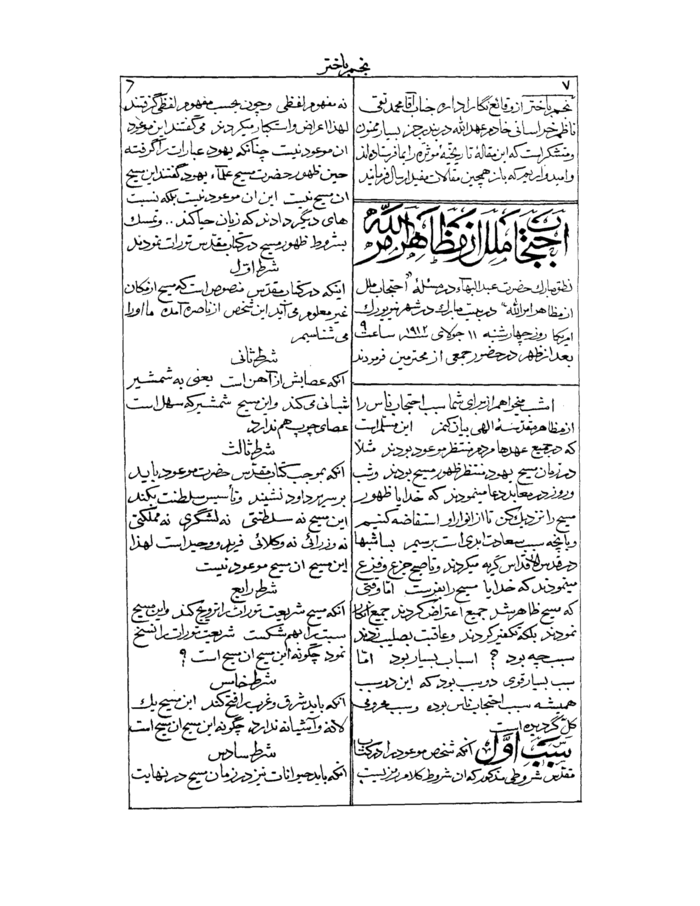 نجم باختر
۷
۶
نجم باختر از وقائع نگار اداره جناب آقا محمد تقی
ناظم خراسانی خادم عهد الله در بندر جز بسیار ممنون
و متشکر است که این مقالهٔ تاریخیهٔ مؤثره را بما فرستاده اند
و امیدواریم که باز همچنین مقالات مفید ارسال فرمایند
احتجاب ملل از مظاهر امر الله
نطق مبارک حضرت عبدالبهاء در مسئلهٔ "احتجاب ملل
از مظاهر امرالله" در بیت مبارک در شهر نیویورک
امریکا روز چهارشنبه ۱۱ جولای ۱۹۱۲ ساعت ۹
بعد از ظهر در حضور جمعی از محترمین فرمودند
امشب میخواهم از برای شما سبب احتجاب ناس را
از مظاهر مقدسهٔ الهی بیان کنم این مسلم است
که در جمیع عهدها مردم منتظر موعود بودند مثلاً
در زمان مسیح یهود منتظر ظهور مسیح بودند و شب
و روز در معابد دعا مینمودند که خدایا ظهور
مسیح را نزدیک کن تا از انوار او استفاضه کنیم
و بآنچه سبب سعادت ابدی است برسیم بسا شبها
در قدس الاقداس گریه میکردند و تا صبح جزع و فزع
مینمودند که خدایا مسیح را بفرست اما وقتی
که مسیح ظاهر شد جمیع اعتراض کردند جمیع انکار
نمودند بلکه تکفیر کردند و عاقبت بصلیب زدند
سبب چه بود ؟ اسباب بسیار بود اما
سبب بسیار قوی دو سبب بود که این دو سبب
همیشه سبب احتجاب ناس بوده و سبب محرومی
کل گردیده است
سبب اول آنکه شخص موعود را در کتاب
مقدس شروطی مذکور که آن شروط کلام رمزیست
نه مفهوم لفظی و چون بحسب مفهوم لفظی گرفتند
لهذا اعراض و استکبار میکردند می گفتند این موعود
آن موعود نیست چنانکه یهود عبارات را گرفته
حین ظهور حضرت مسیح علماء یهود گفتند این مسیح
آن مسیح نیست این آن موعود نیست بلکه نسبت
های دیگر دادند که زبان حیا کند .. و تمسک
بشروط ظهور مسیح در کتاب مقدس تورات نمودند
شرط اول
اینکه در کتاب مقدس منصوص است که مسیح از مکان
غیر معلوم می آید این شخص از ناصره آمده ما او را
می شناسیم
شرط ثانی
آنکه عصایش از آهن است یعنی به شمشیر
شبانی می کند و این مسیح شمشیر که سهل است
عصای چوب هم ندارد
شرط ثالث
آنکه بموجب کتاب مقدس حضرت موعود باید
بر سریر داود نشیند و تأسیس سلطنت بکند
این مسیح نه سلطنتی نه لشگری نه مملکتی
نه وزرائی نه وکلائی فرید و وحید است لهذا
این مسیح آن مسیح موعود نیست
شرط رابع
آنکه مسیح شریعت تورات را ترویج کند و این مسیح
سبت را بهم شکست شریعت تورات را نسخ
نمود چگونه این مسیح آن مسیح است ؟
شرط خامس
آنکه باید شرق و غرب را فتح کند این مسیح یک
لانه و آشیانه ندارد چگونه این مسیح آن مسیح است
شرط سادس
آنکه باید حیوانات نیز در زمان مسیح در نهایت